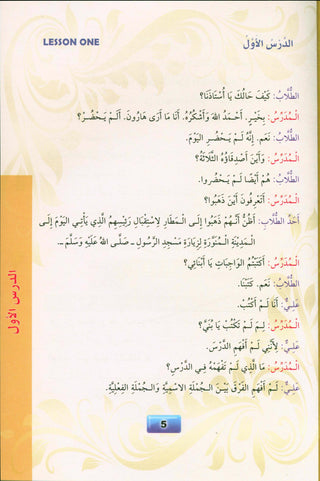 الدَّرْسُ الأَوَّلُ LESSON ONE
الطُّلَّابُ: كَيْفَ حَالُكَ يَا أُسْتَاذَنَا؟
الْـمُدَرِّسُ: بِخَيْرٍ. أَحْمَدُ اللهَ وَأَشْكُرُهُ. أَنَا مَا أَرَى هَارُونَ. أَلَـمْ يَـحْضُرْ؟
الطُّلَّابُ: نَعَم. إِنَّهُ لَـمْ يَـحْضُرِ الْيَوْمَ.
الْـمُدَرِّسُ: وَأَيْنَ أَصْدِقَاؤُهُ الثَّلَاثَةُ؟
الطُّلَّابُ: هُمْ أَيْضًا لَـمْ يَـحْضُروا.
الْـمُدَرِّسُ: أَتَعْرِفُونَ أَيْنَ ذَهَبُوا؟
أَحَدُ الطُّلَّابِ: أَظُنُّ أَنَّـهُمْ ذَهَبُوا إِلَـى الْـمَطَارِ لِاسْتِقْبَالِ رَئِيسِهِمُ الَّذِي يَأْتِـي الْيَوْمَ إِلَـى
الْـمَدِيْنَةِ الْـمُنَوَّرَةِ لِزِيَارَةِ مَسْجِدِ الرَّسُولِ ـ صَلَّى اللهُ عَلَيْهِ وَسَلَّمَ ـ.
الْـمُدَرِّسُ: أَكَتَبْتُمُ الْوَاجِبَاتِ يَا أَبْنَائِي؟
الطُّلَّابُ: نَعَم. كَتَبْنَا.
عَلِـيٌّ: أَنَا لَـمْ أَكْتُبْ.
الْـمُدَرِّسُ: لِـمَ لَـمْ تَكْتُبْ يَا بُنَيَّ؟
عَلِـيٌّ: لِأَنَّنِي لَـمْ أَفْهَمِ الدَّرْسَ.
الْـمُدَرِّسُ: مَا الَّذِي لَـمْ تَفْهَمْهُ فِـي الدَّرْسِ؟
عَلِـيٌّ: لَـمْ أَفْهَمِ الْفَرْقَ بَيْـنَ الْـجُمْلَةِ الاسْمِيَّةِ وَالْـجُمْلَةِ الْفِعْلِيَّةِ.
الدرس الأول
5